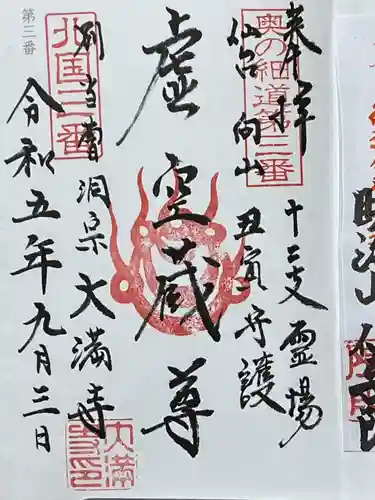 奉拝 十二支霊場
奥の細道第三番
仙台向山 丑寅守護
虚空蔵尊
別当曹洞宗大満寺
北国三番
令和五年九月三日
第三番
大満寺印